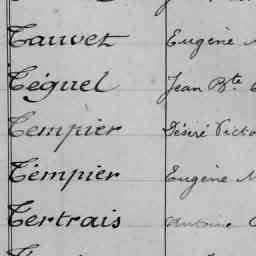 Tauvet Eugène
Téguel Jean Bte
Tempier Désiré Victo
Témpier Eugène
Tertrais Antoine